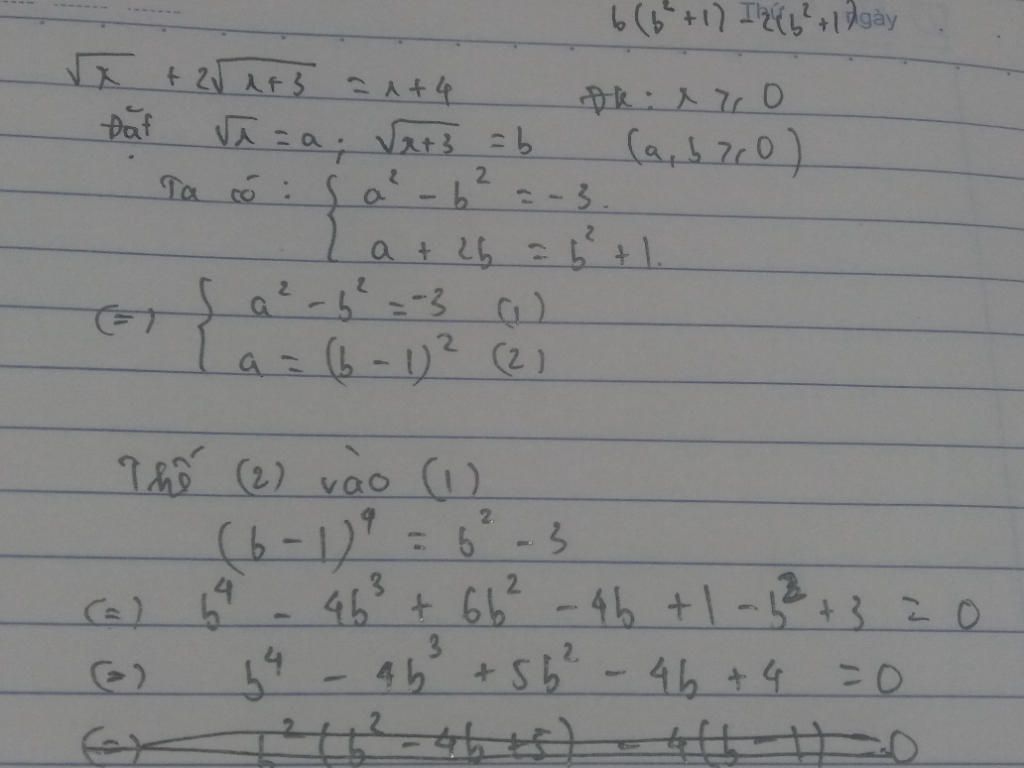 b(b² + 1) - 2(b² + 1) Thứ Ngày
√x + 2√(x+3) = x + 4 ĐK: x ≥ 0
Đặt √x = a; √(x+3) = b (a, b ≥ 0)
Ta có: { a² - b² = -3.
a + 2b = b² + 1.
(=) { a² - b² = -3 (1)
a = (b - 1)² (2)
Thế (2) vào (1)
(b - 1)⁴ = b² - 3
(=) b⁴ - 4b³ + 6b² - 4b + 1 - b² + 3 = 0
(=) b⁴ - 4b³ + 5b² - 4b + 4 = 0
(=) b²(b² - 4b + 5) - 4(b - 1) = 0